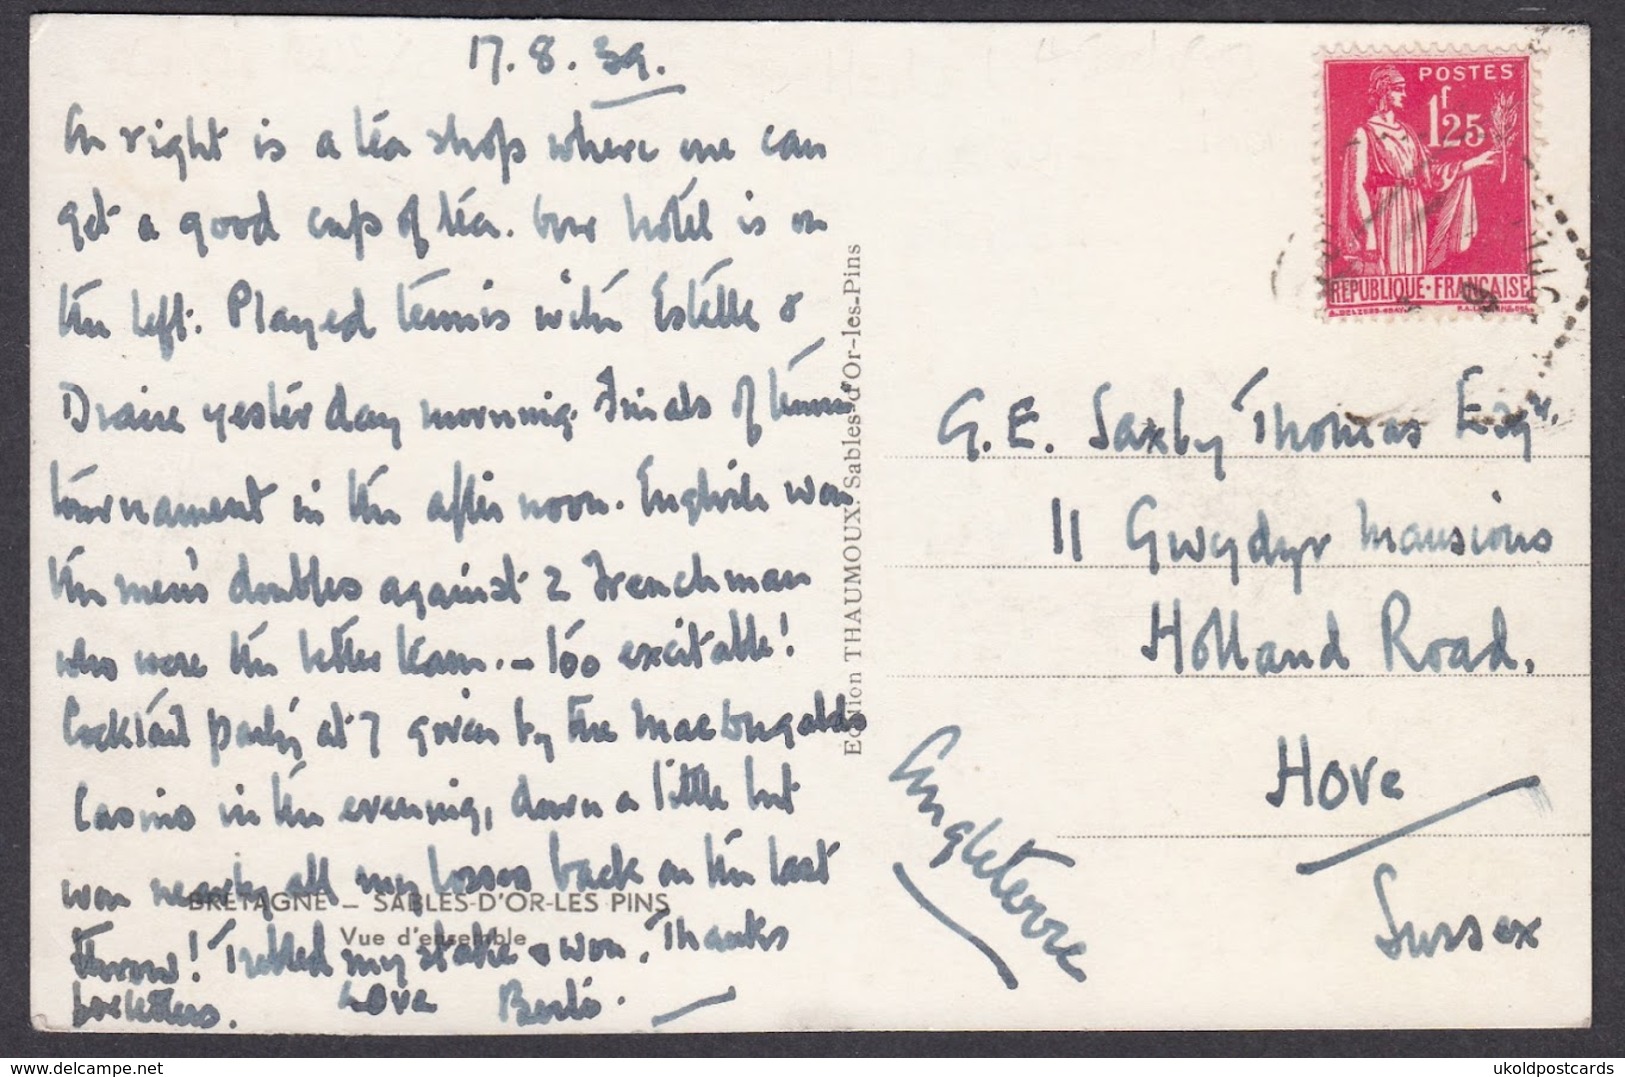 17.8.39.
On right is a tea shop where one can
get a good cup of tea. Our hotel is on
the left. Played tennis with Estelle &
yesterday morning. Finals of tennis
tournament in the afternoon. English won
the men's doubles against 2 Frenchman
who were the better team. – too excitable!
Cocktail party at 7 given by the MacDugalds
Casino in the evening, down a little but
won nearly all my losses back on the last
throw! Trebled my stake & won. Thanks
for letters. Love
BRETAGNE – SABLES-D'OR-LES PINS
Vue d'ensemble
Edition THAUMOUX. Sables d'Or-les-Pins
POSTES
1f25
REPUBLIQUE·FRANÇAISE
G. E. Saxby Thomas Esqr.
11 Gwydyr Mansions
Holland Road,
Hove
Sussex
Angleterre
ukoldpostcards